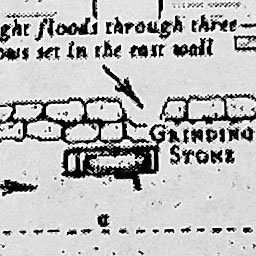 ght floods through three
ows set in the east wall
GRINDING
STONE
a